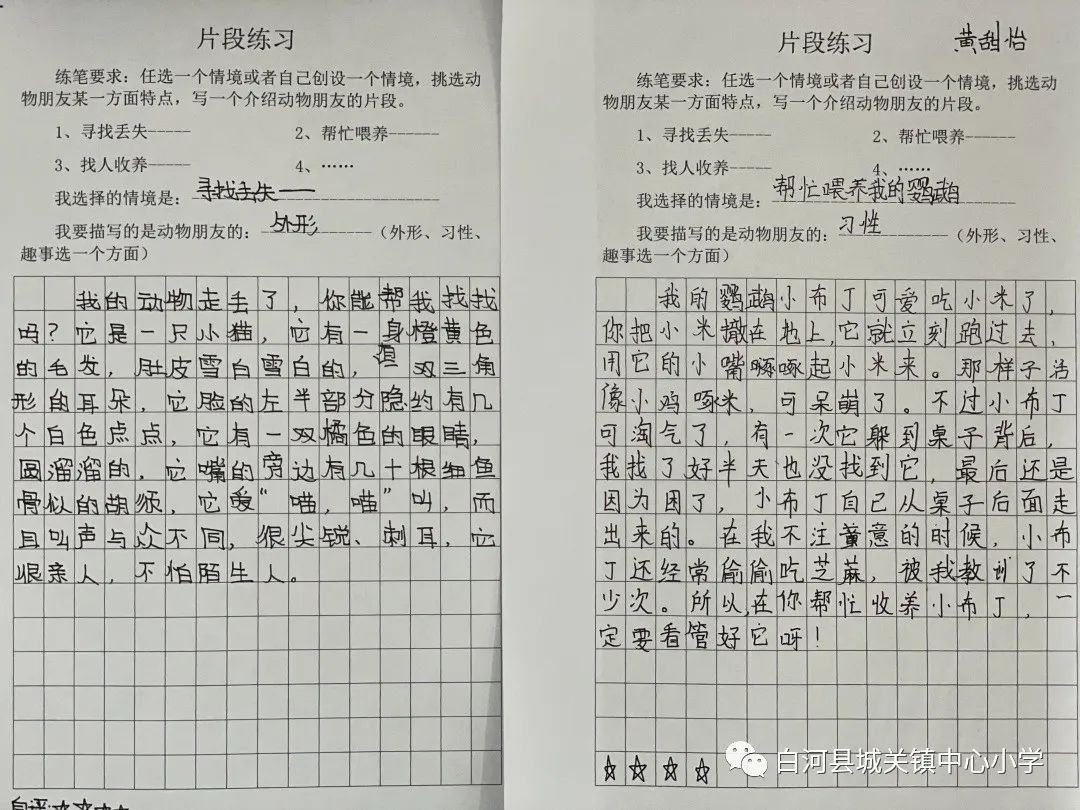 片段练习
练笔要求：任选一个情境或者自己创设一个情境，挑选动
物朋友某一方面特点，写一个介绍动物朋友的片段。
1、寻找丢失-----
2、帮忙喂养------
3、找人收养-----
4、……
我选择的情境是：寻找丢失——
我要描写的是动物朋友的：外形（外形、习性、
趣事选一个方面）
我的动物走丢了，你能帮我找找
吗？它是一只小猫，它有一身橙黄色
的毛发，肚皮雪白雪白的，顶双三角
形的耳朵，它脸的左半部分隐约有几
个白色点点，它有一双橘色的眼睛，
圆溜溜的，它嘴的旁边有几十根细鱼
骨似的胡须，它爱“喵，喵”叫，而
且叫声与众不同，很尖锐、刺耳，它
很亲人，不怕陌生人。
自评：☆☆☆☆
片段练习
黄甜怡
练笔要求：任选一个情境或者自己创设一个情境，挑选动
物朋友某一方面特点，写一个介绍动物朋友的片段。
1、寻找丢失-----
2、帮忙喂养------
3、找人收养-----
4、……
我选择的情境是：帮忙喂养我的鹦鹉
我要描写的是动物朋友的：习性（外形、习性、
趣事选一个方面）
我的鹦鹉小布丁可爱吃小米了，
你把小米撒在地上，它就立刻跑过去，
用它的小嘴啄啄起小米来。那样子活
像小鸡啄米，可呆萌了。不过小布丁
可淘气了，有一次它躲到桌子背后，
我找了好半天也没找到它，最后还是
因为困了，小布丁自己从桌子后面走
出来的。在我不注意的时候，小布
丁还经常偷偷吃芝麻，被我教训了不
少次。所以，在你帮忙收养小布丁，一
定要看管好它呀！
☆☆☆☆
白河县城关镇中心小学